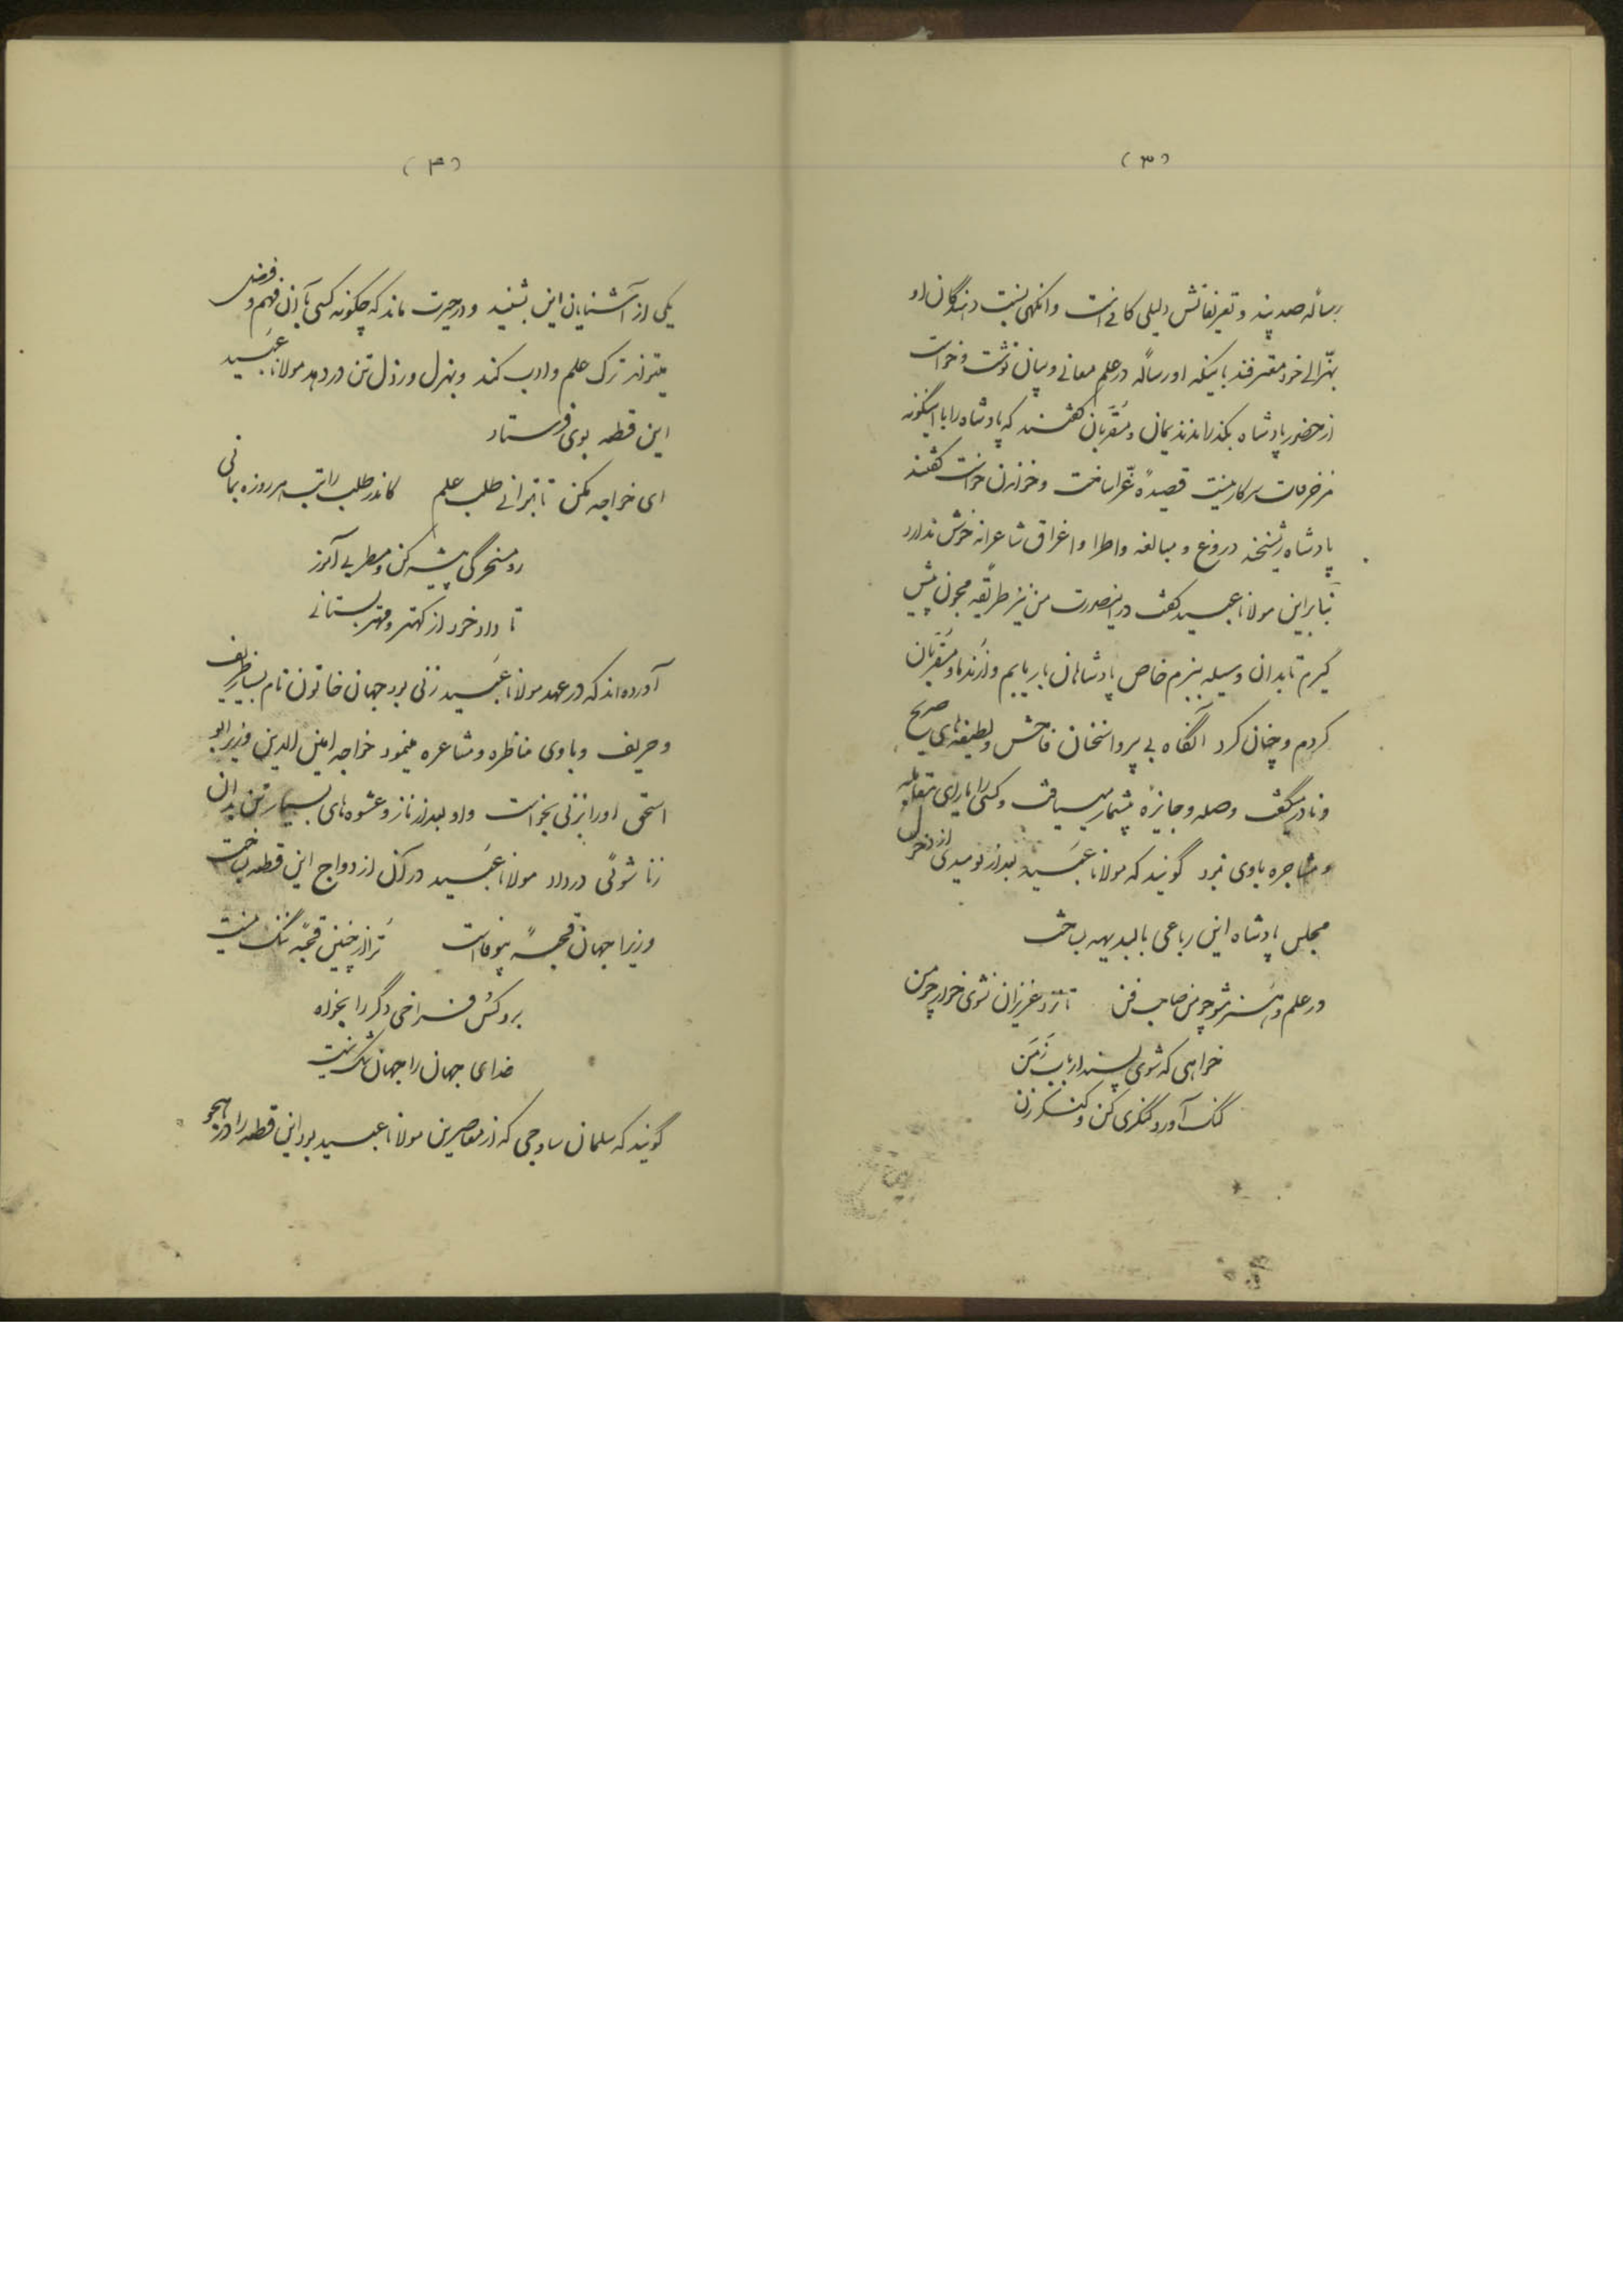 (۳)
رساله صد پند و تعریفاتش دلیلی کافی است و انگهی نسبت دهندگان او
بهزالی خود معترفند باینکه او رساله در علم معانی و بیان نوشت و خواست
از حضور پادشاه بگذراند ندیمان و مقربان گفتند که پادشاه را با اینگونه
مزخرفات سرکار نیست قصیدهٔ غرّا ساخت و خواندن خواست گفتند
پادشاه ریشخند دروغ و مبالغه و اطرا و اغراق شاعرانه خوش ندارد
بنابراین مولانا عبید گفت در اینصورت من نیز طریقه مجون پیش
گیرم تا بدان وسیله ببزم خاص پادشاهان بار یابم و از ندما و مقربان
گردم و چنان کرد آنگاه بی پروا سخنان فاحش و لطیفه‌های صریح
و نادر میگفت و صله و جایزه بیشمار میافت و کسی را یارای مقابله
و مشاجره با وی نبود گویند که مولانا عبید بعد از نومیدی از دخول
مجلس پادشاه این رباعی بالبدیهه ساخت
در علم و هنر مشو چو من صاحب فن تا نزد عزیزان نشوی خوار چو من
خواهی که شوی پسند ارباب زمن
کنگ آور و کنگری کن و کنگر زن
(۴)
یکی از آشنایان این بشنید و در حیرت ماند که چگونه کسی با آن فهم و فضل
میتواند ترک علم و ادب کند و بهزل و رذل تن در دهد مولانا عبید
این قطعه بوی فرستاد
ای خواجه مکن تا بتوانی طلب علم کاندر طلب راتب هر روزه بمانی
رو مسخرگی پیشه کن و مطربی آموز
تا داد خود از کهتر و مهتر بستانی
آورده‌اند که در عهد مولانا عبید زنی بود جهان خاتون نام بسیار ظریف
و حریف و با وی مناظره و مشاعره مینمود خواجه امین الدین وزیر ابو
اسحق او را بزنی بخواست و او بعد از ناز و عشوه‌های بسیار تن بدان
زناشوئی در داد مولانا عبید در آن ازدواج این قطعه ساخت
وزیرا جهان قحبهٔ بیوفاست ترا از چنین قحبهٔ ننگ نیست
برو کس فراخی دگر را بخواه
خدای جهان را جهان تنگ نیست
گویند که سلمان ساوجی که از معاصرین مولانا عبید بود این قطعه را در هجو